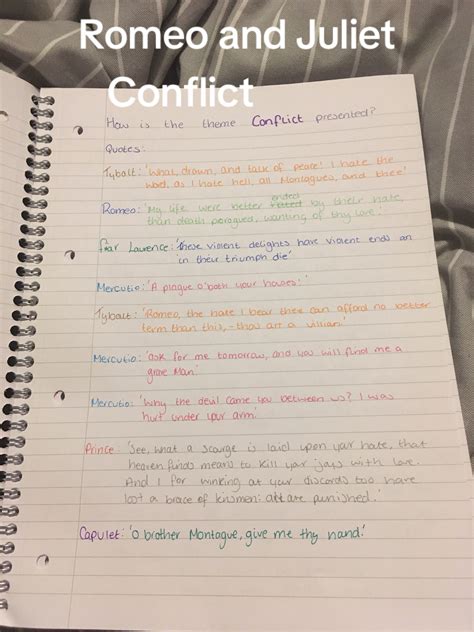 Romeo and Juliet
Conflict
How is the theme Conflict presented?
Quotes:
Tybalt: 'What, drawn, and talk of peace! I hate the
word, as I hate hell, all Montagues, and thee'
Romeo: 'My life were better ended by their hate,
than death poragued, wanting of thy love.'
fear Laurence: 'these violent delights have violent ends an
in their triumph die'
Mercutio: 'A plague o'both your houses!'
Tybalt: 'Romeo, the hate I bear thee can afford no better
term than this,- thou art a villian.'
Mercutio: 'ask for me tomorrow, and you will find me a
grave Man.'
Mercutio: 'Why the devil came you between us? I was
hurt under your arm.'
Prince: 'See, what a scourge is laid upon your hate, that
heaven finds means to kill your joys with love.
And I for winking at your discords too have
lost a brace of kinsmen: all are punished.'
Capulet: 'O brother Montague, give me thy hand.'